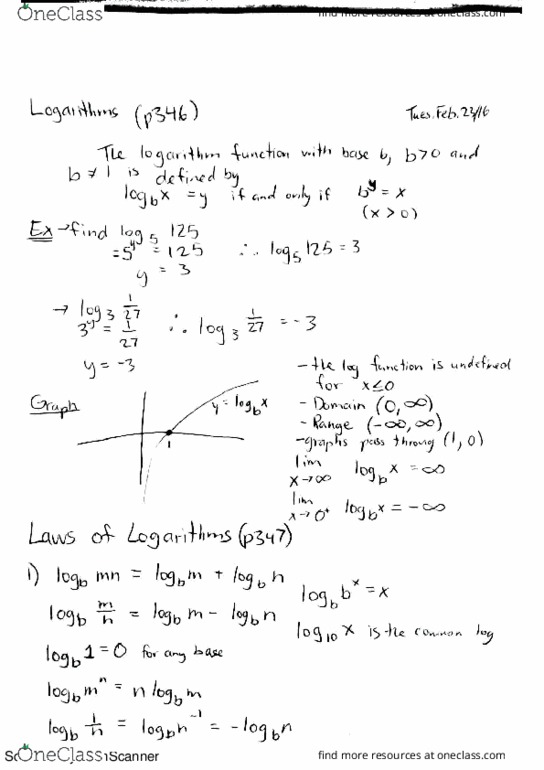 OneClass
find more resources at oneclass.com
Logarithms (p346)
Tues. Feb. 23/16
The logarithm function with base b, b>0 and
b ≠ 1 is defined by
log_b x = y if and only if b^y = x
(x > 0)
Ex → find log_5 125
= 5^y = 125 ∴ log_5 125 = 3
y = 3
→ log_3 1/27
3^y = 1/27 ∴ log_3 1/27 = -3
y = -3
Graph
y = log_b x
1
- the log function is undefined
for x ≤ 0
- Domain (0, ∞)
- Range (-∞, ∞)
- graphs pass throung (1, 0)
lim x→∞ log_b x = ∞
lim x→0⁺ log_b x = -∞
Laws of Logarithms (p347)
1) log_b mn = log_b m + log_b n
log_b m/n = log_b m - log_b n
log_b 1 = 0 for any base
log_b m^n = n log_b m
log_b 1/n = log_b n^-1 = -log_b n
log_b b^x = x
log_10 x is the common log
OneClass
Scanner
find more resources at oneclass.com